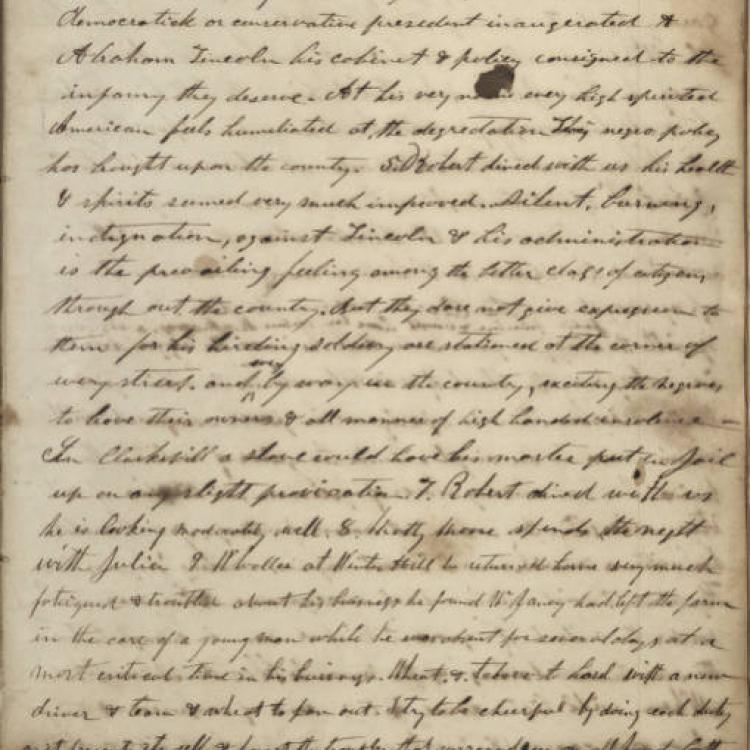 democratick or conservative president inaugerated &
Abraham Lincoln his cabinet & policy consigned to the
infamy they deserve. At his very name every high spirited
American feels humeliated at the degredation This negro policy
has brought upon the country. 5. Robert dined with us his health
& spirits seemed very much improved. Silent, burning,
indignation, against Lincoln & his administration
is the prevailing feeling among the better class of citizens
through out the country. But they dare not give expression to
them for his hireling soldiery are stationed at the corner of
every street, and by way in the country, exciting the negroes
to leave their owners & all manner of high handed insolence
In Clarksvill a slave could have his master put in Jail
up on any slight provocation. 7. Robert dined with us
he is looking moderately well. 8. Moore spends the night
with Julia 9. at Hill he returned home very much
fatigued & troubled about his business he found had left the farm
in the care of a young man while he was absent for several days at a
most critical time in his business. Wheat, & tobacco to load with a new
driver & team & wheat to fan out. I try to be cheerful by doing each duty